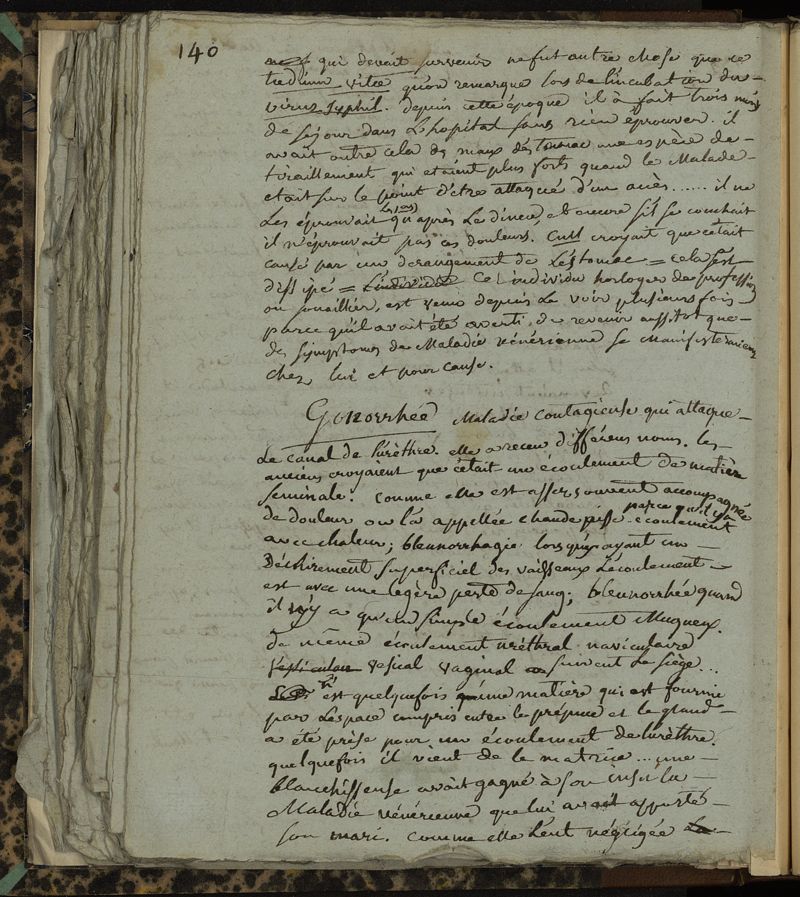 140
qui devait survenir ne fut autre chose que ce
tœdium vitæ qu'on remarque lors de l'incubation du
virus syphil. depuis cette époque il a fait trois mois
de séjour dans l'hopital sans rien éprouver. il
avait outre cela des maux d'estomac une espèce de
tiraillement qui etaient plus forts quand le Malade
etait sur le point d'etre attaqué d'un accès ...... il ne
Les éprouvait qu'après Le diner, et encore s'il se couchait
il n'éprouvait pas ces douleurs. Cull croyait que c'était
causé par un derangement de L'estomac = cela s'est
dissipé = L'individu Cet individu horloger de profession
ou jouaillier, est venu depuis Le voir plusieurs fois
parce qu'il avait été averti de revenir aussitot que
des symptomes de Maladie vénérienne se manifesteraient
chez lui et pour cause.
Gonorrhée Maladie contagieuse qui attaque
Le canal de l'urèthre. elle a recu différens noms. les
anciens croyaient que c'était un écoulement de matière
séminale. comme elle est assez souvent accompagnée
de douleur on l'a appellée chaude pisse parce qu'il y a écoulement
avec chaleur; blennorrhagie lorsqu'y ayant un
Déchirement superficiel des vaisseaux L'ecoulement
est avec une legère perte de sang; blennorrhée quand
il n'y a qu'un simple écoulement Muqueux.
de même écoulement uréthral naviculaire
vesical vaginal suivant Le siège ...
est quelquefois qu'une matière qui est fournie
par L'espace compris entre le prépuce et le gland
a été prise pour un écoulement de l'urèthre.
quelquefois il vient de la matrice ... une
blanchisseuse avait gagné à son insu la
Maladie vénérienne que lui avait apporté
son mari. comme elle l'eut négligée La